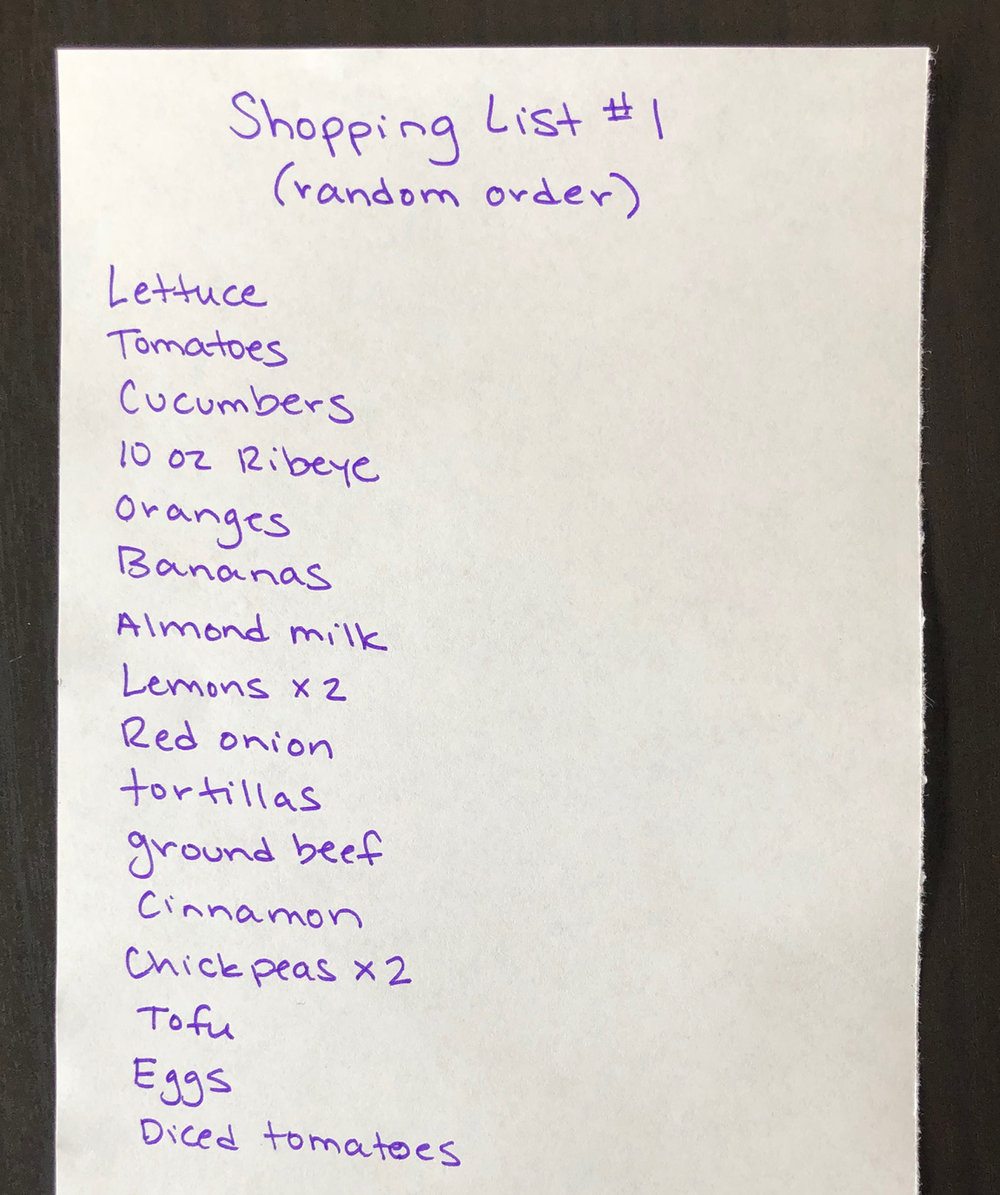 Shopping List #1
(random order)
Lettuce
Tomatoes
Cucumbers
10 oz Ribeye
Oranges
Bananas
Almond milk
Lemons x 2
Red onion
tortillas
ground beef
Cinnamon
Chickpeas x 2
Tofu
Eggs
Diced tomatoes